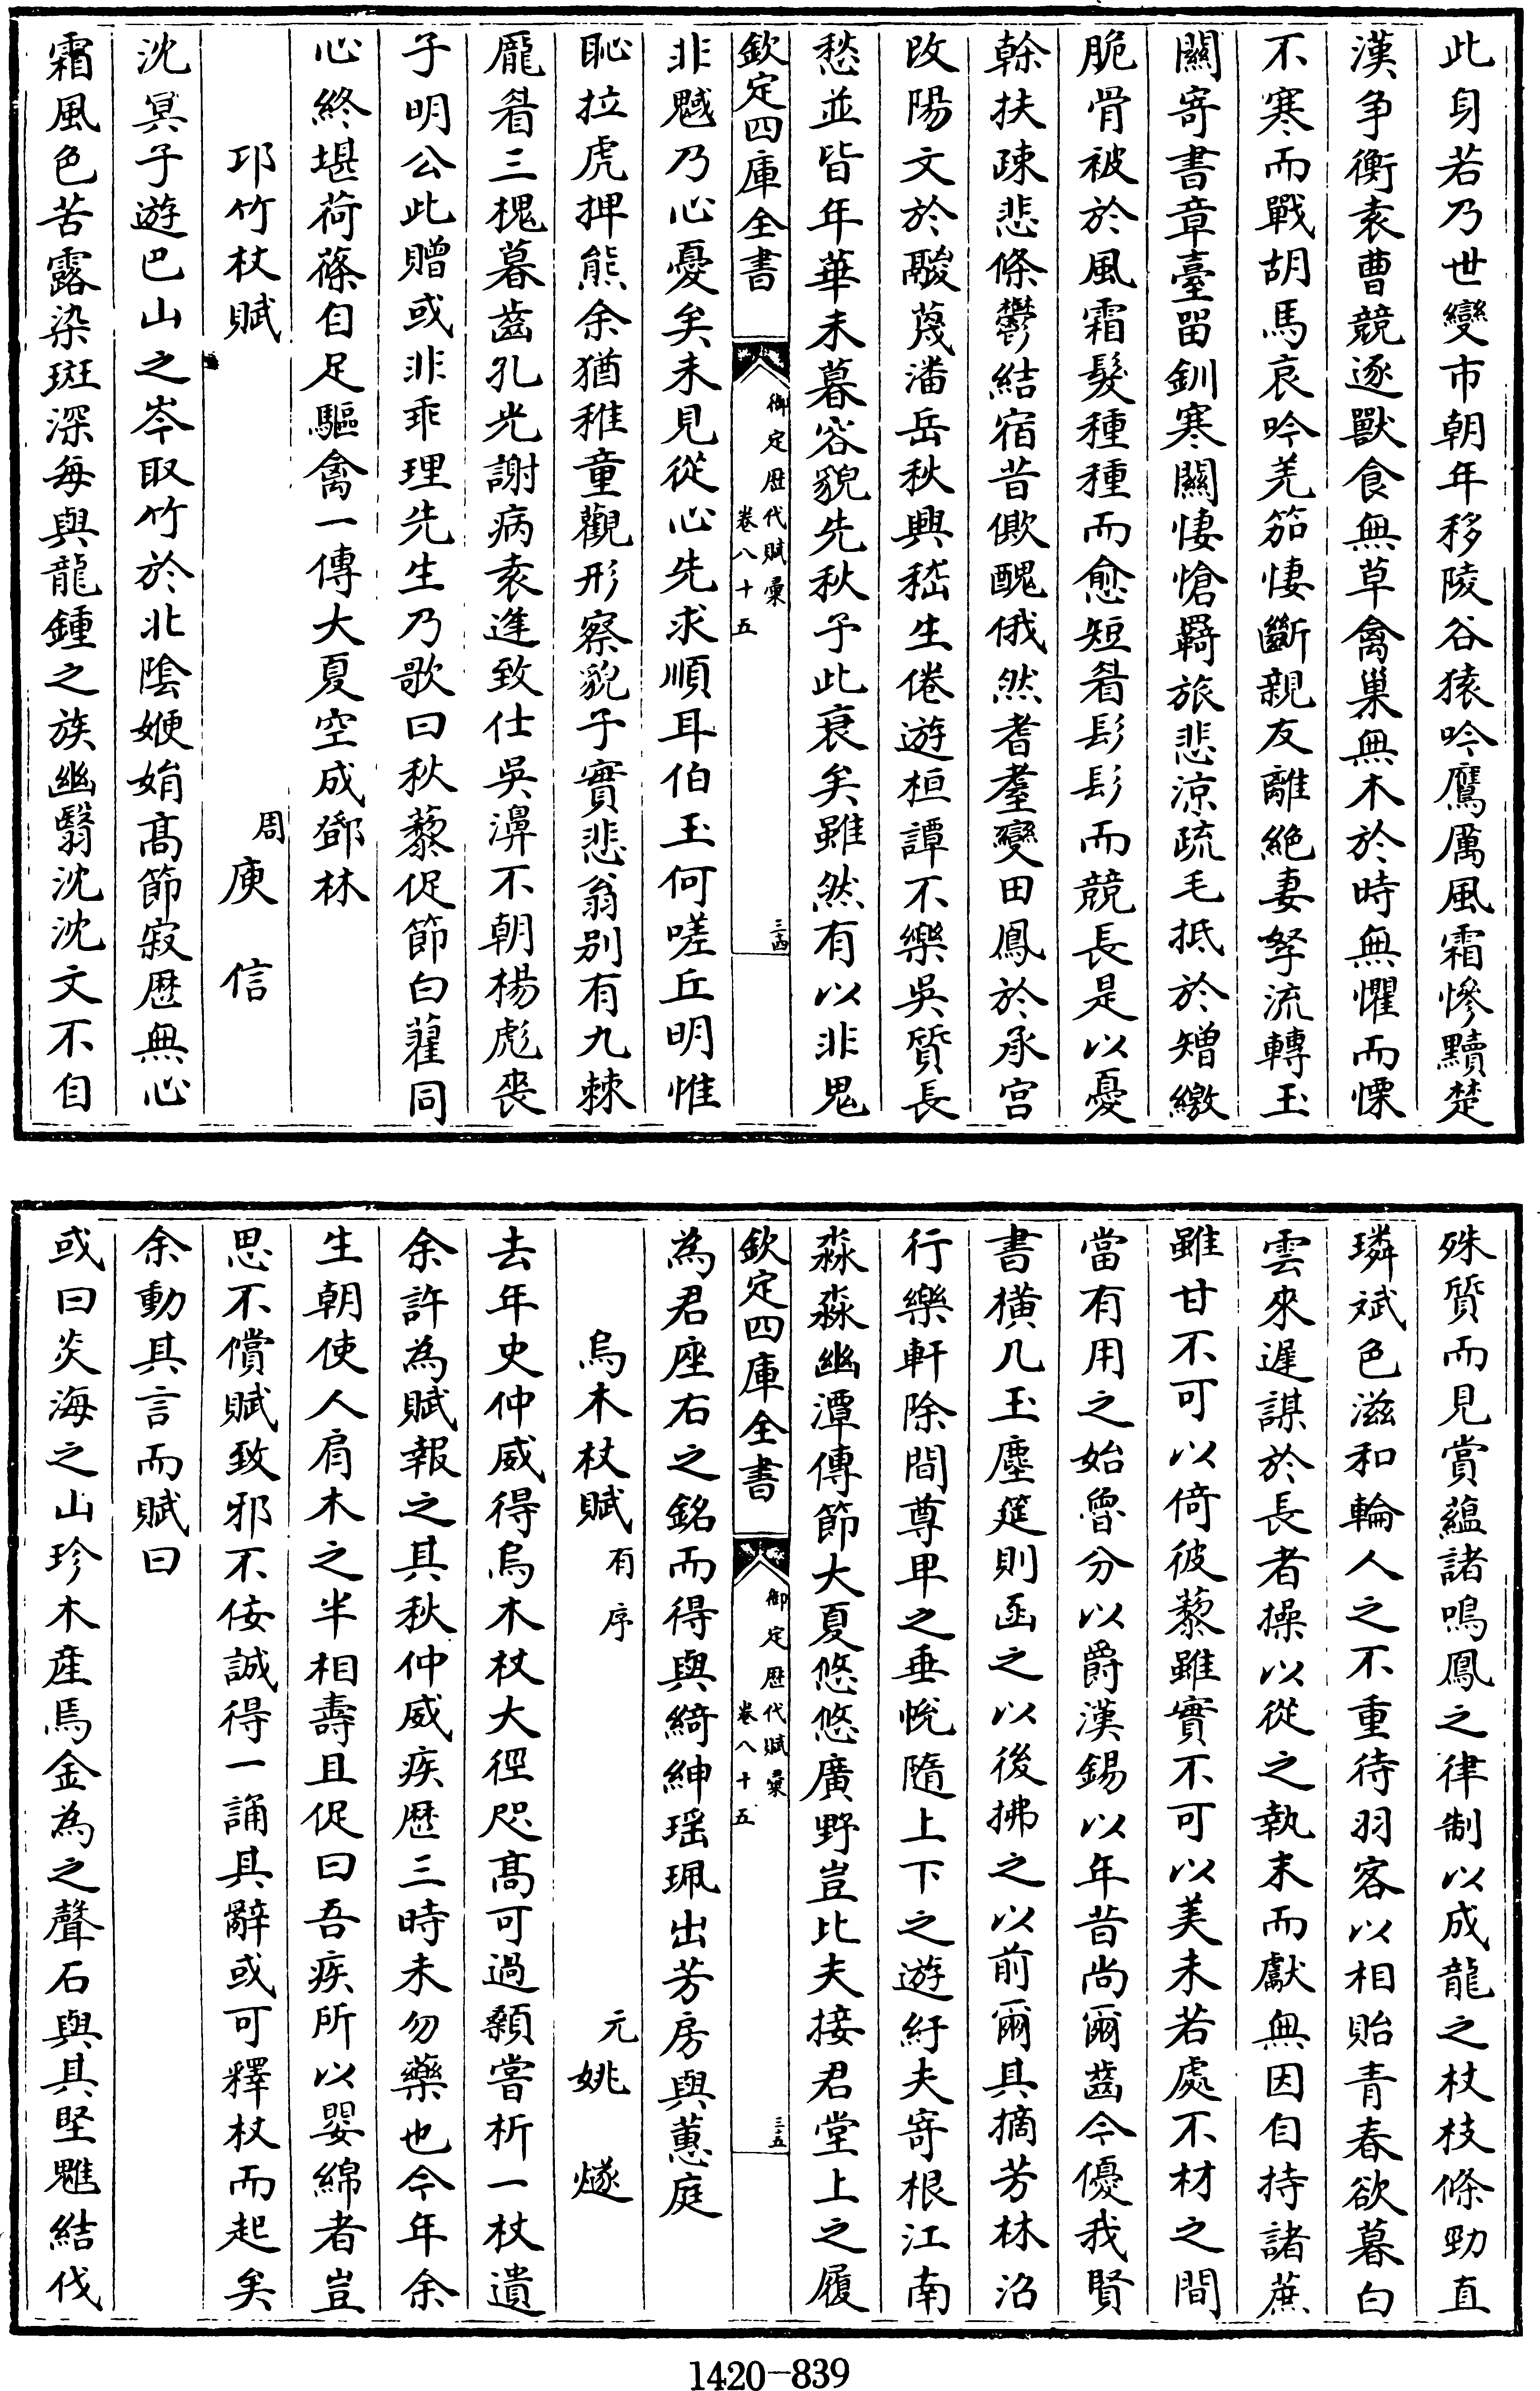 此身若乃世變市朝年移陵谷猿吟鷹厲風霜慘黷楚
漢爭衡袁曹競逐獸食無草禽巢無木於時無懼而慄
不寒而戰胡馬哀吟羌笳悽斷親友離絶妻孥流轉玉
關寄書章臺留釧寒關悽愴羇旅悲涼疏毛抵於矰繳
脆骨被於風霜髮種種而愈短眉髟髟而競長是以憂
幹扶疎悲條鬱結宿昔僛醜俄然耆耋變田鳳於承宮
改陽文於鬷蔑潘岳秋興嵇生倦遊桓譚不樂吳質長
愁並皆年華未暮容貌先秋予此衰矣雖然有以非鬼
欽定四庫全書
御定歷代賦彙
卷八十五
三十四
非魊乃心憂矣未見從心先求順耳伯玉何嗟丘明惟
恥拉虎押熊余猶稚童觀形察貌子實悲翁別有九棘
龎眉三槐暮齒孔光謝病袁逢致仕吳濞不朝楊彪喪
子明公此贈或非乖理先生乃歌曰秋藜促節白藋同
心終堪荷蓧自足驅禽一傳大夏空成鄧林
卭竹杖賦
周庾信
沈冥子遊巴山之岑取竹於北陰㛹娟髙節寂歷無心
霜風色苦露染斑深每與龍鍾之族幽翳沈沈文不自
殊質而見賞蘊諸鳴鳳之律制以成龍之杖枝條勁直
璘斌色滋和輪人之不重待羽客以相貽青春欲暮白
雲來遲謀於長者操以從之執末而獻無因自持諸蔗
雖甘不可以倚彼藜雖實不可以美未若處不材之間
當有用之始魯分以爵漢錫以年昔尚爾齒今優我賢
書横几玉塵筵則函之以後拂之以前爾其摘芳林沼
行樂軒除間尊卑之垂帨隨上下之遊紆夫寄根江南
淼淼幽潭傳節大夏悠悠廣野豈比夫接君堂上之履
欽定四庫全書
御定歷代賦彙
卷八十五
三十五
為君座右之銘而得與綺紳瑶珮出芳房與蕙庭
烏木杖賦有序
元姚燧
去年史仲威得烏木杖大徑咫髙可過顙嘗析一杖遺
余許為賦報之其秋仲威疾歷三時未勿藥也今年余
生朝使人肩木之半相壽且促曰吾疾所以嬰綿者豈
思不償賦致邪不佞誠得一誦具辭或可釋杖而起矣
余動其言而賦曰
或曰炎海之山珍木産焉金為之聲石與其堅魋結伐
1420-839